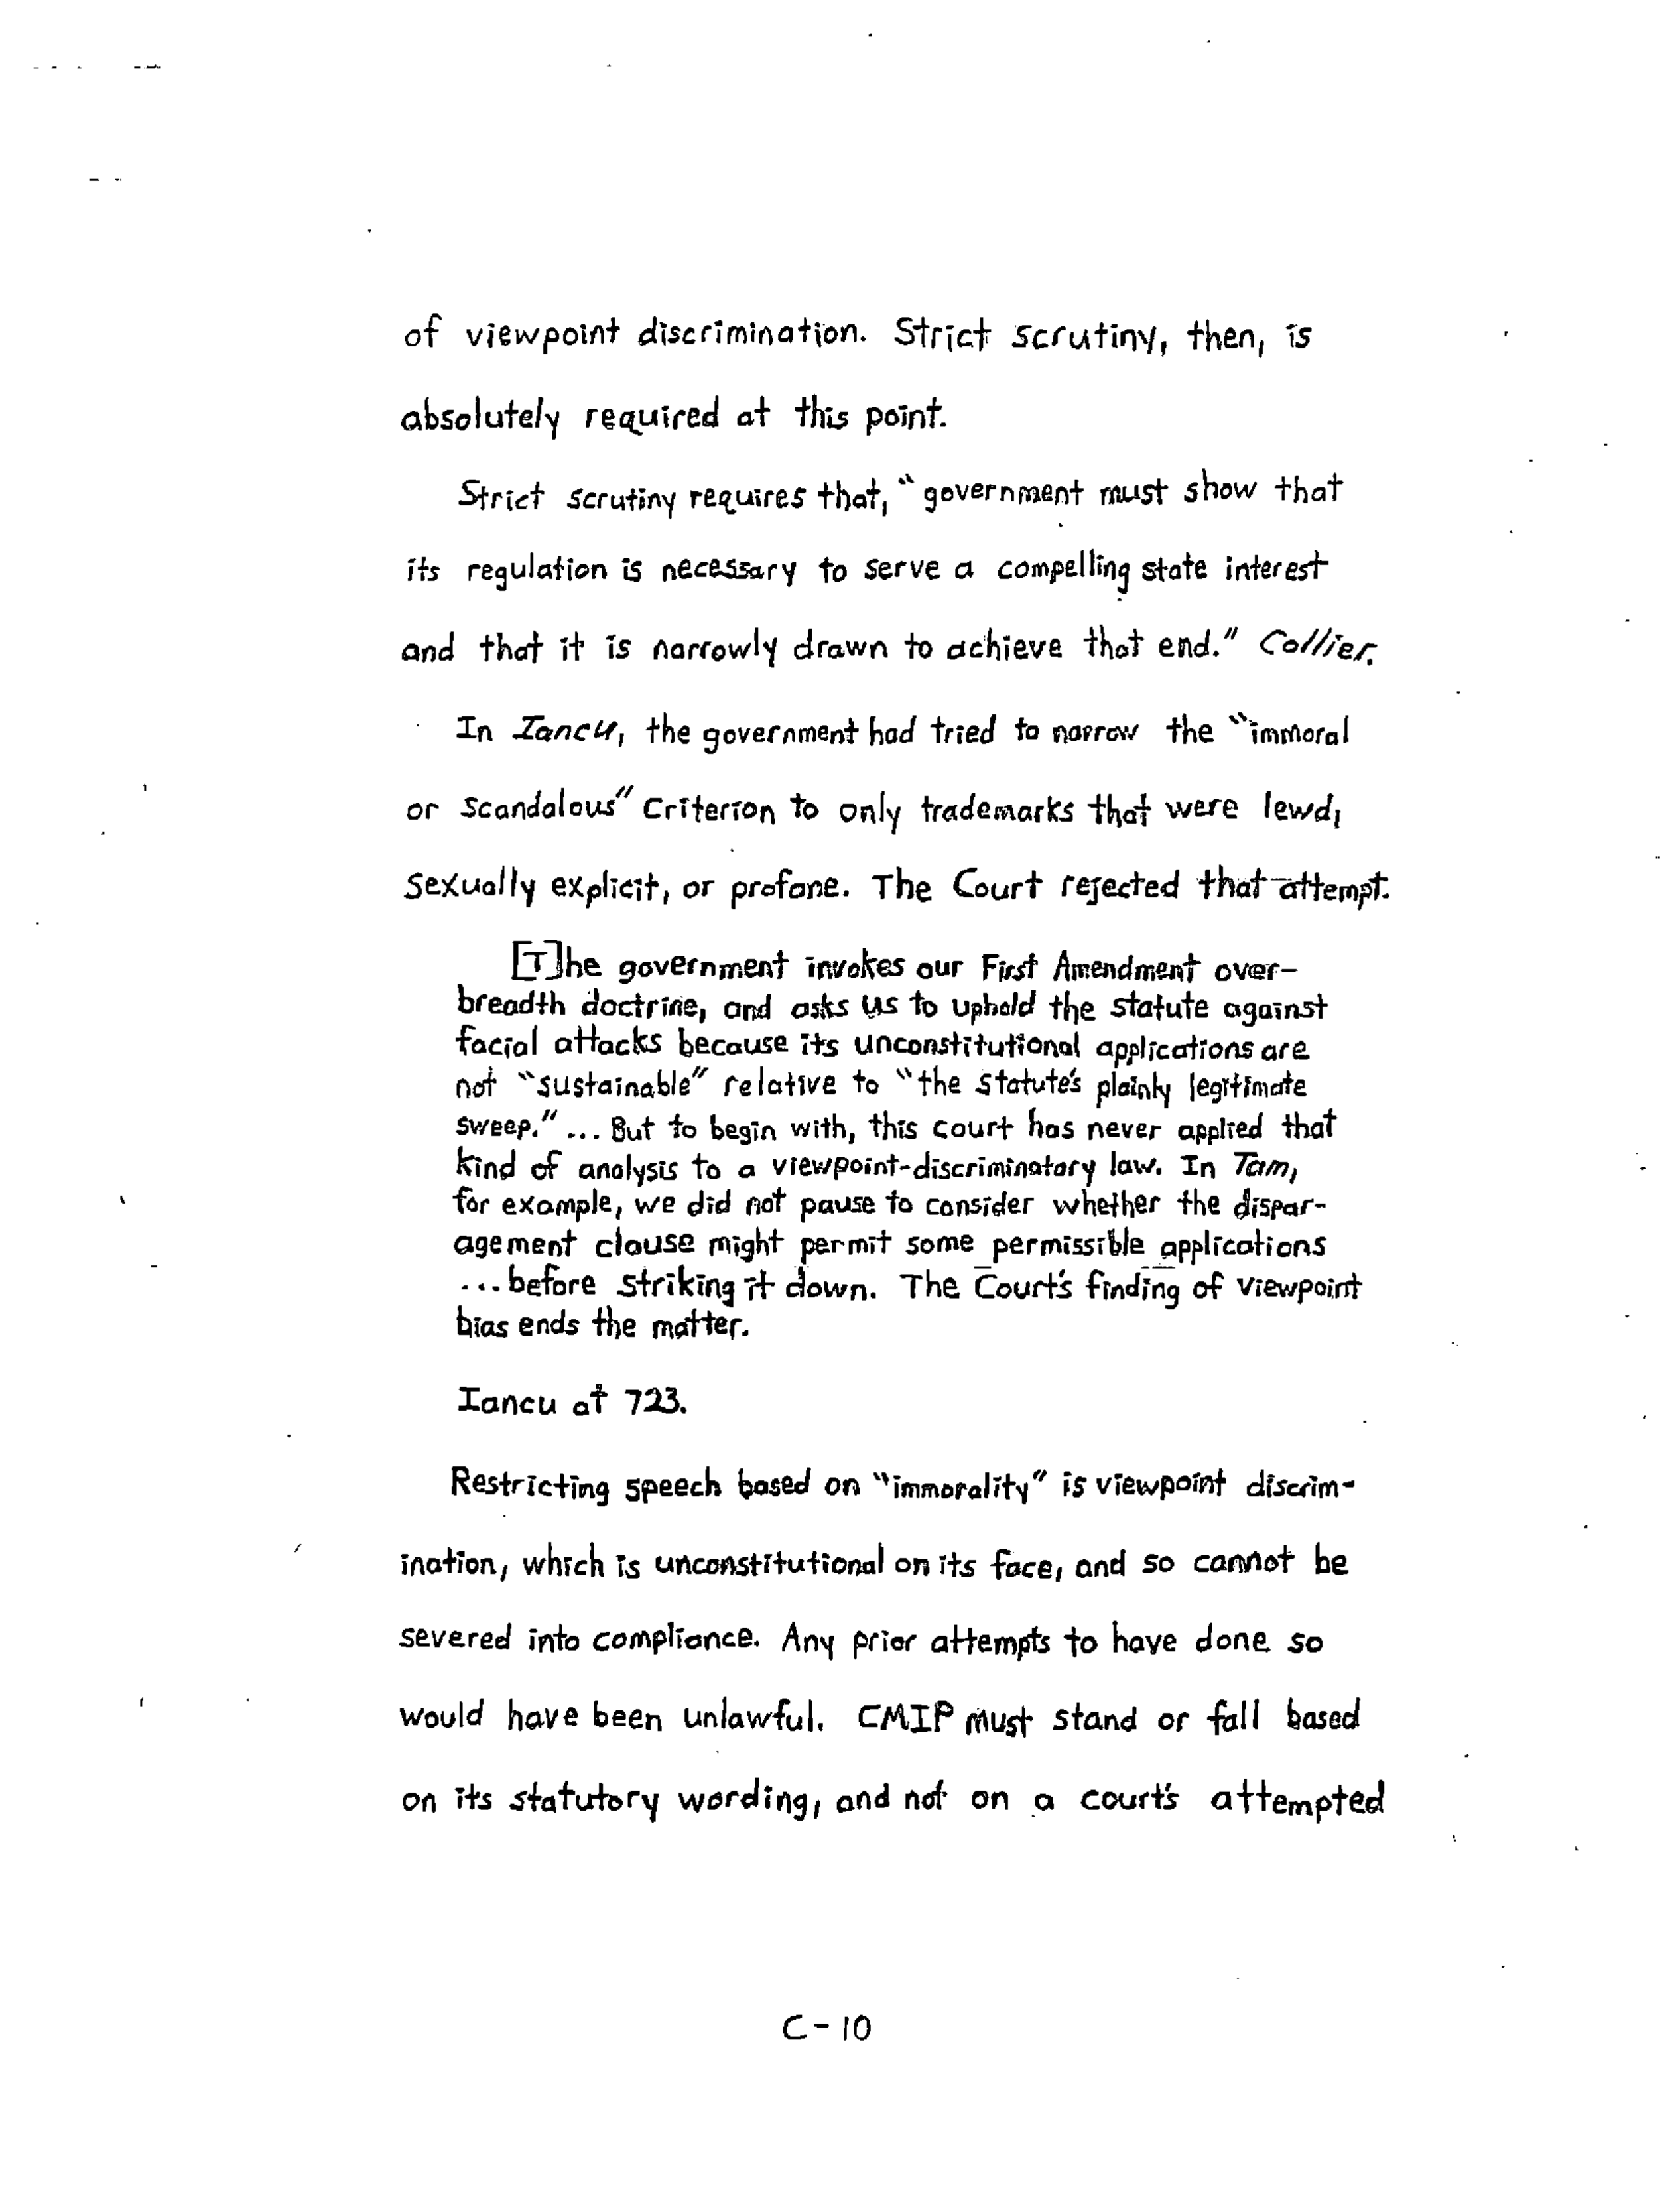 of viewpoint discrimination. Strict scrutiny, then, is
absolutely required at this point.
Strict scrutiny requires that, "government must show that
its regulation is necessary to serve a compelling state interest
and that it is narrowly drawn to achieve that end." Collier.
In Iancu, the government had tried to narrow the "immoral
or scandalous" criterion to only trademarks that were lewd,
sexually explicit, or profane. The Court rejected that attempt.
[T]he government invokes our First Amendment over-
breadth doctrine, and asks us to uphold the statute against
facial attacks because its unconstitutional applications are
not "sustainable" relative to "the statute's plainly legitimate
sweep." ... But to begin with, this court has never applied that
kind of analysis to a viewpoint-discriminatory law. In Tam,
for example, we did not pause to consider whether the dispar-
agement clause might permit some permissible applications
... before striking it down. The Court's finding of viewpoint
bias ends the matter.
Iancu at 723.
Restricting speech based on "immorality" is viewpoint discrim-
ination, which is unconstitutional on its face, and so cannot be
severed into compliance. Any prior attempts to have done so
would have been unlawful. CMIP must stand or fall based
on its statutory wording, and not on a court's attempted
C-10